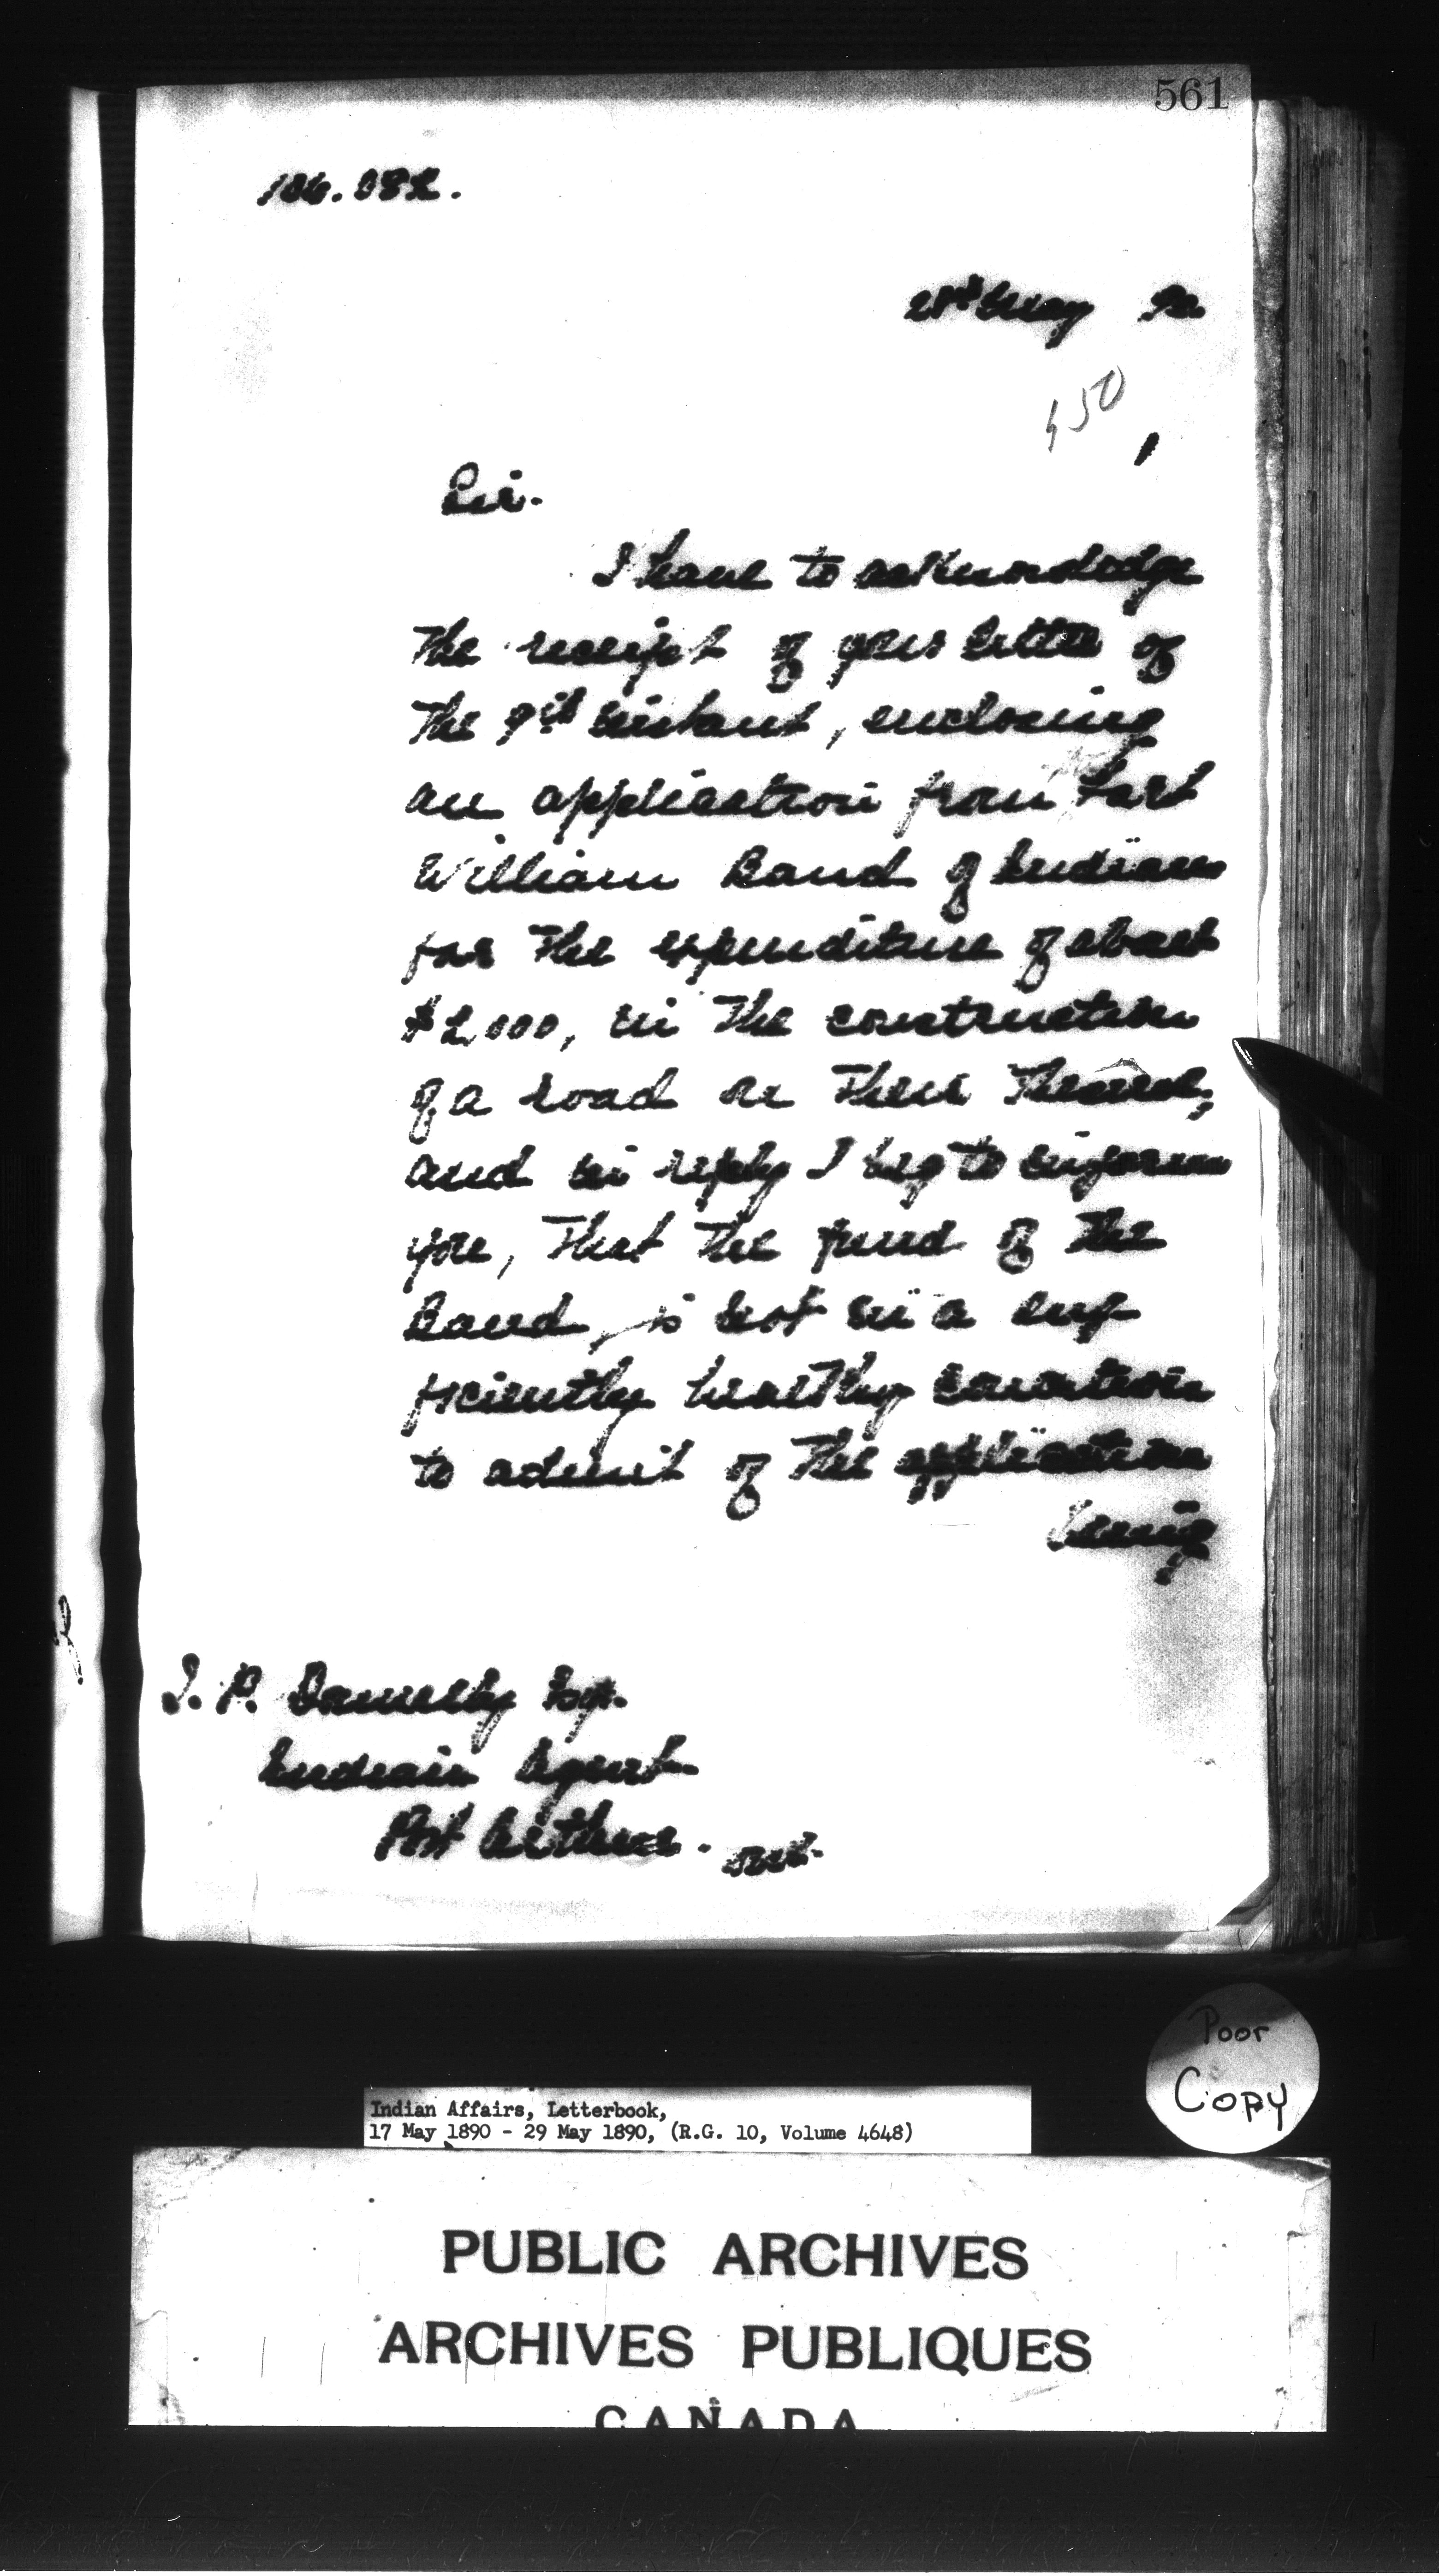 561
106.082.
21st May 90
550
Sir.
I have to acknowledge
the receipt of your letter of
the 9th instant, enclosing
an application from Fort
William Band of Indians
for the expenditure of about
$2,000, in the construction
of a road on their Reserve,
and in reply I beg to inform
you, that the fund of the
Band, is not in a suf
ficiently healthy condition
to admit of the application
being
J. P. Donnelly Esqr.
Indian Agent
Port Arthur. Ont.
Poor
Copy
Indian Affairs, Letterbook,
17 May 1890 - 29 May 1890, (R.G. 10, Volume 4648)
PUBLIC ARCHIVES
ARCHIVES PUBLIQUES
CANADA